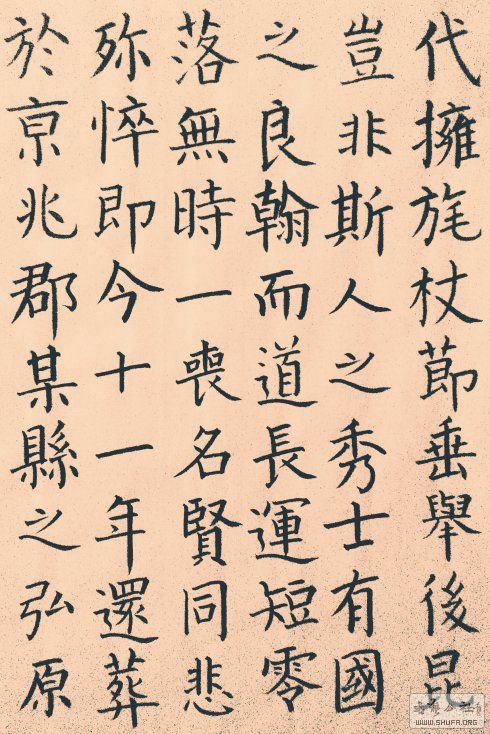 代擁旄杖節垂舉後昆
豈非斯人之秀士有國
之良翰而道長運短零
落無時一喪名賢同悲
殄悴即今十一年還葬
於京兆郡某縣之弘原
WWW.SHUFA.ORG